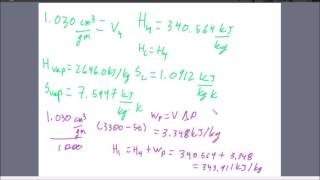 1.030 cm³/gm = V₄ H₄ = 340.564 kJ/kg
H₂ = H₄
H vap = 2646.0 kJ/kg S_L = 1.0912 kJ/kg K
S vap = 7.5947 kJ/kg K
1.030 cm³/gm (3300-50) W_P = V ΔP
1000 = 3.348 kJ/kg
H₁ = H₄ + W_P = 340.564 + 3.348
= 343.911 kJ/kg